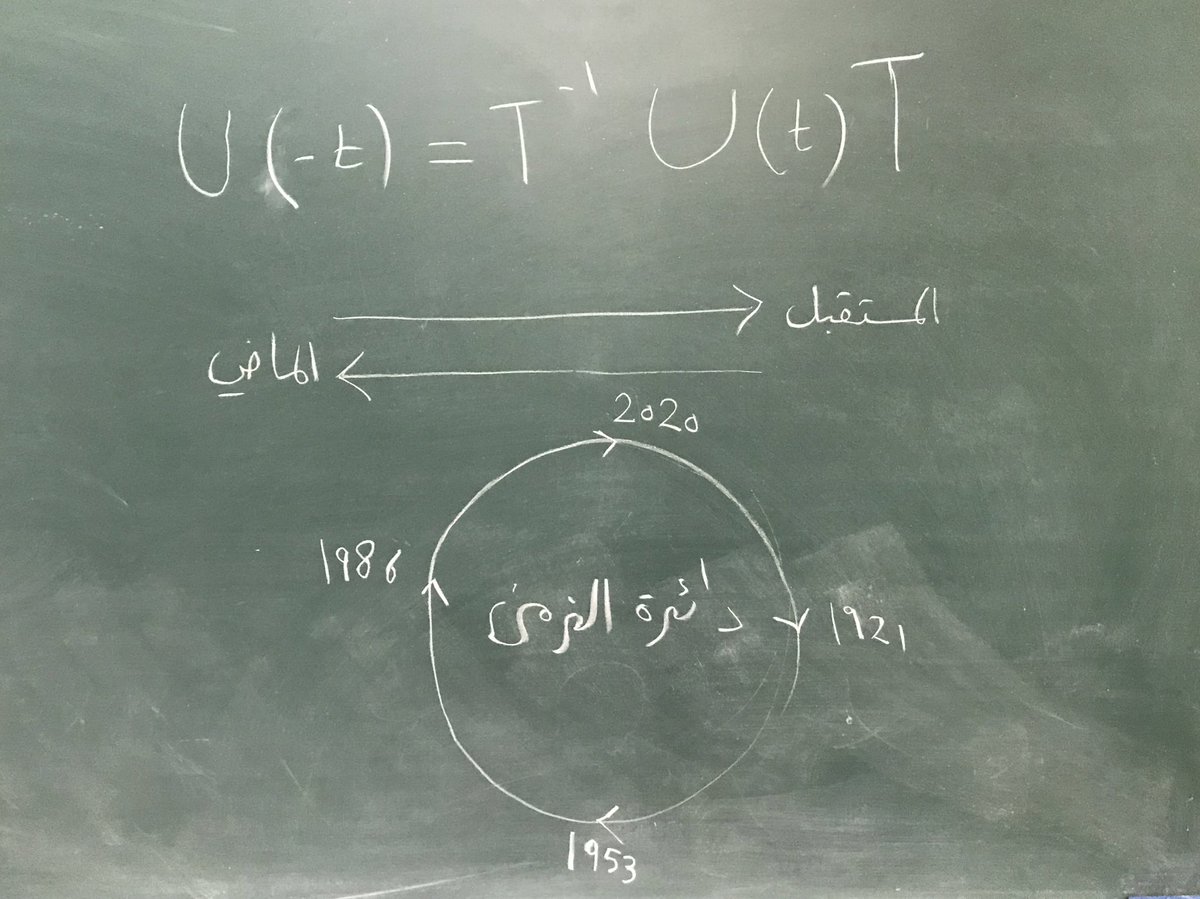 U(-t) = T⁻¹ U(t) T
المستقبل
الماضي
2020
1986
دائرة الزمن
1921
1953